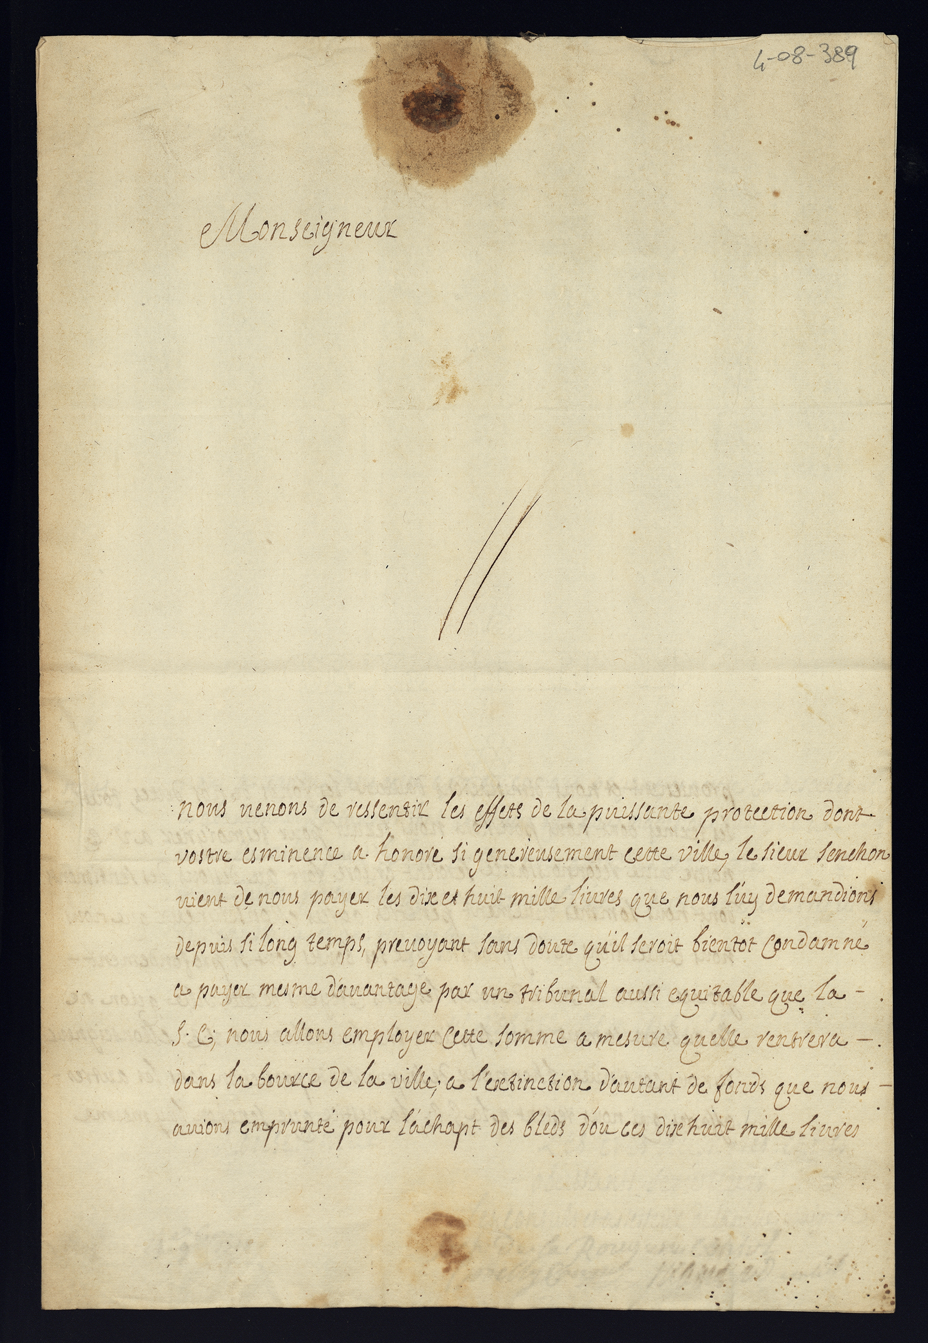 4-08-389
Monseigneur
nous venons de ressentir les effets de la puissante protection dont
vostre esminence a honoré si genereusement cette ville, le sieur Senchon
vient de nous payer les dix et huit mille livres que nous luy demandions
depuis si long temps, prevoyant sans doute qu'il seroit bientôt condamné
a payer mesme d'avantage par un tribunal aussi equitable que la -
S. C; nous allons employer cette somme a mesure quelle rentrera -
dans la bource de la ville; a l'extinction d'autant de fonds que nous -
avions emprunté pour l'achapt des bleds d'ou ces dix huit mille livres